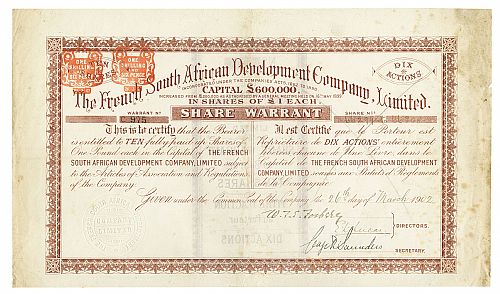 ONE SHILLING AND SIX PENCE
ONE SHILLING AND SIX PENCE
TEN SHARES
DIX ACTIONS
The French South African Development Company, Limited.
INCORPORATED UNDER THE COMPANIES ACTS, 1862 TO 1890
CAPITAL £600,000,
INCREASED FROM £200,000 AS AUTHORISED BY A GENERAL MEETING HELD ON 16TH MAY 1899
IN SHARES OF £1 EACH.
WARRANT Nº
SHARE WARRANT
SHARE NOS
This is to certify that the Bearer
is entitled to TEN fully paid up Shares of
One Pound each in the Capital of THE FRENCH
SOUTH AFRICAN DEVELOPMENT COMPANY, LIMITED subject
to the Articles of Association and Regulations
of the Company.
Il est Certifié que le Porteur est
Propriétaire de DIX ACTIONS entièrement
libérées chacune de Une Livre, dans le
Capital de THE FRENCH SOUTH AFRICAN DEVELOPMENT
COMPANY, LIMITED soumises aux Statuts et Règlements
de la Compagnie
Given under the Common Seal of the Company this 26th day of March 1902
DIRECTORS.
Joseph Saunders
SECRETARY.
DIX ACTIONS